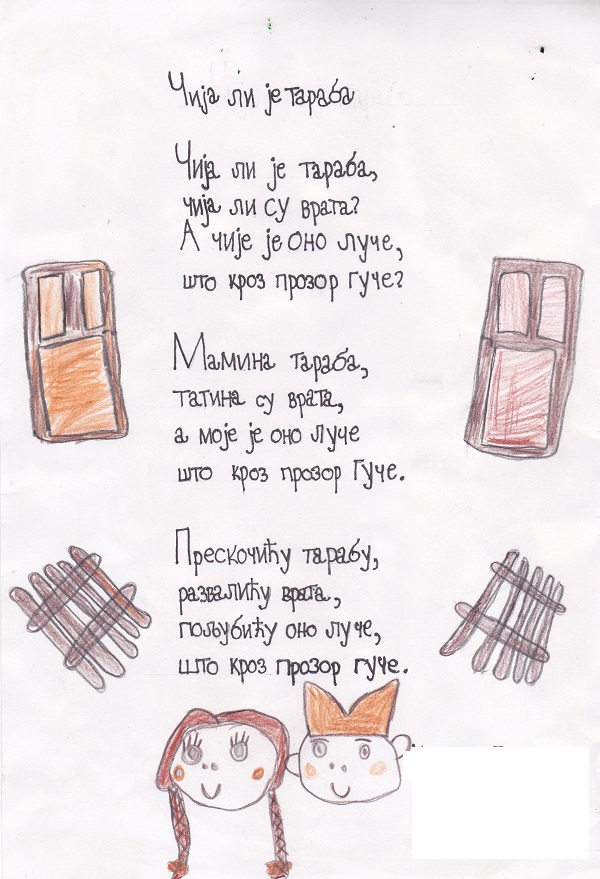 Чија ли је тараба
Чија ли је тараба,
чија ли су врата?
А чије је оно луче,
што кроз прозор гуче?
Мамина тараба,
татина су врата,
а моје је оно луче
што кроз прозор гуче.
Прескочићу тарабу,
развалићу врата,
пољубићу оно луче,
што кроз прозор гуче.